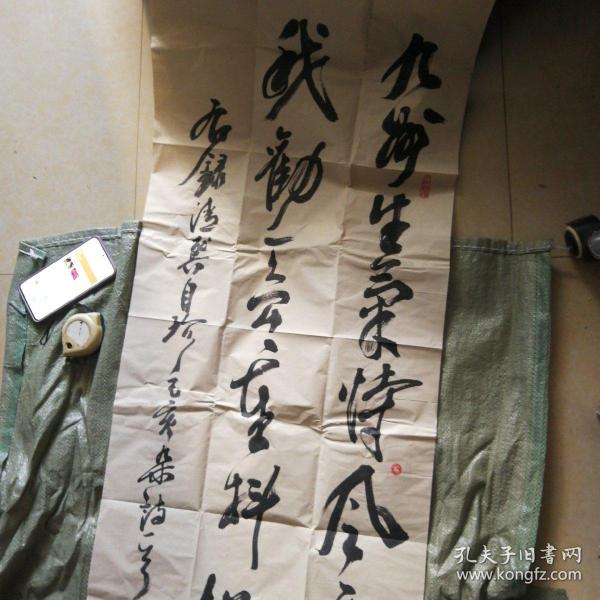 九州生氣恃風
我勸天公重抖
右錄清龔自珍己亥杂詩一首
孔夫子旧書网
www.kongfz.com